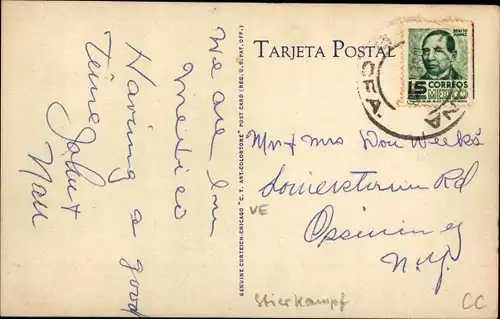 We are in
Mexico
Having a good
Time
John +
Nan
GENUINE CURTEICH-CHICAGO "C. T. ART-COLORTONE" POST CARD (REG. U.S. PAT. OFF.)
TARJETA POSTAL
BENITO JUAREZ
15
CORREOS
MEXICO
Mr + Mrs Don Weeks
Rd
Ossining
N.Y.
VE
Stierkampf
CC